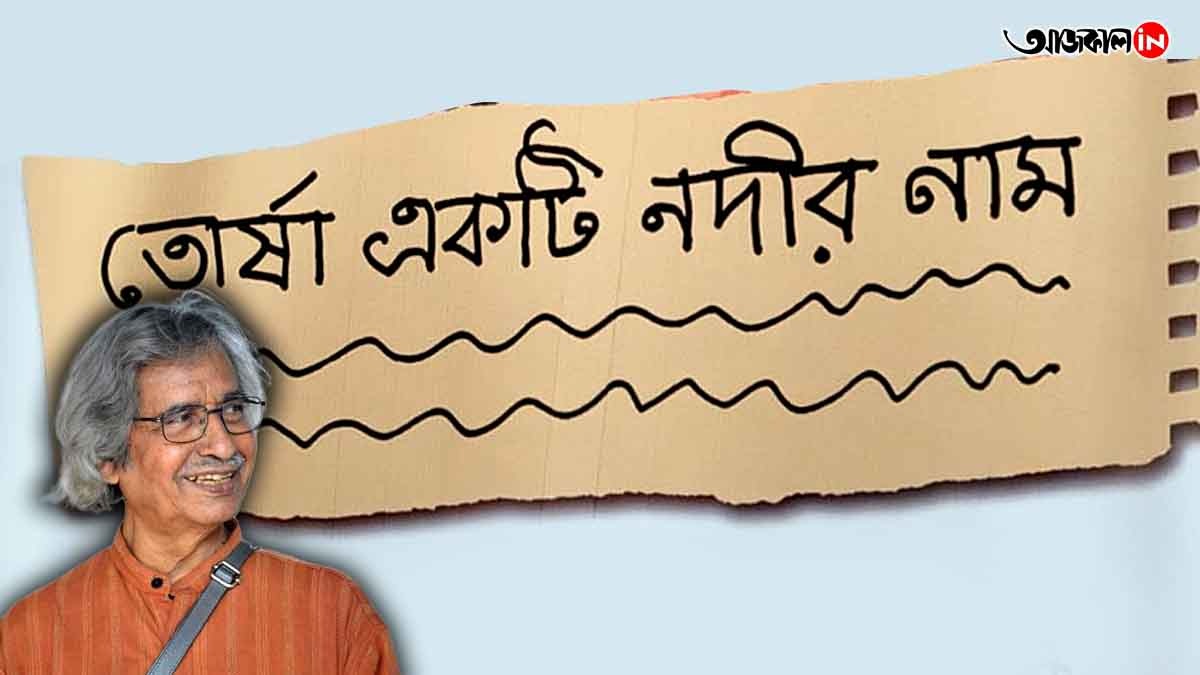 আজকাল in
তোর্ষা একটি নদীর নাম